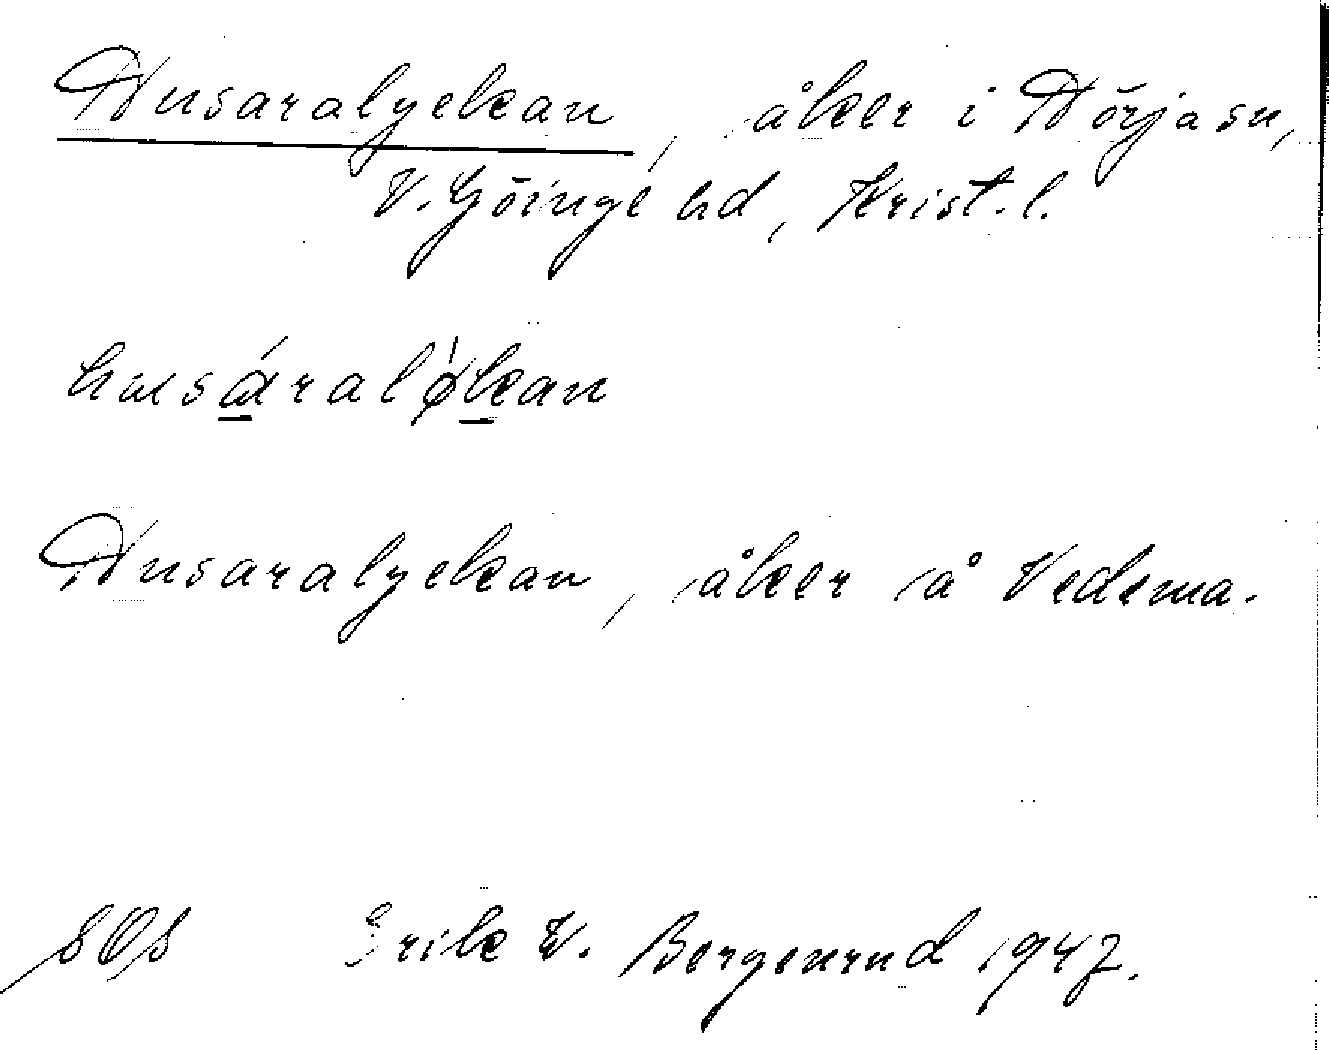 Husaralyckan, åker i Hörja sn,
V. Göinge hd, Krist. l.
husáralỳkan
Husaralyckan, åker å Vedema.
Erik W. Bergenrud 1947.